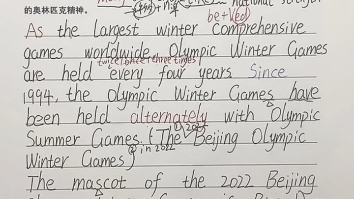 的奥林匹克精神。
be+(ed)
As the largest winter comprehensive
games worldwide, Olympic Winter Games
are held every four years Since
1994, the Olympic Winter Games have
been held alternately with Olympic
Summer Games. (The Beijing Olympic
② in 2022
Winter Games)
The mascot of the 2022 Beijing